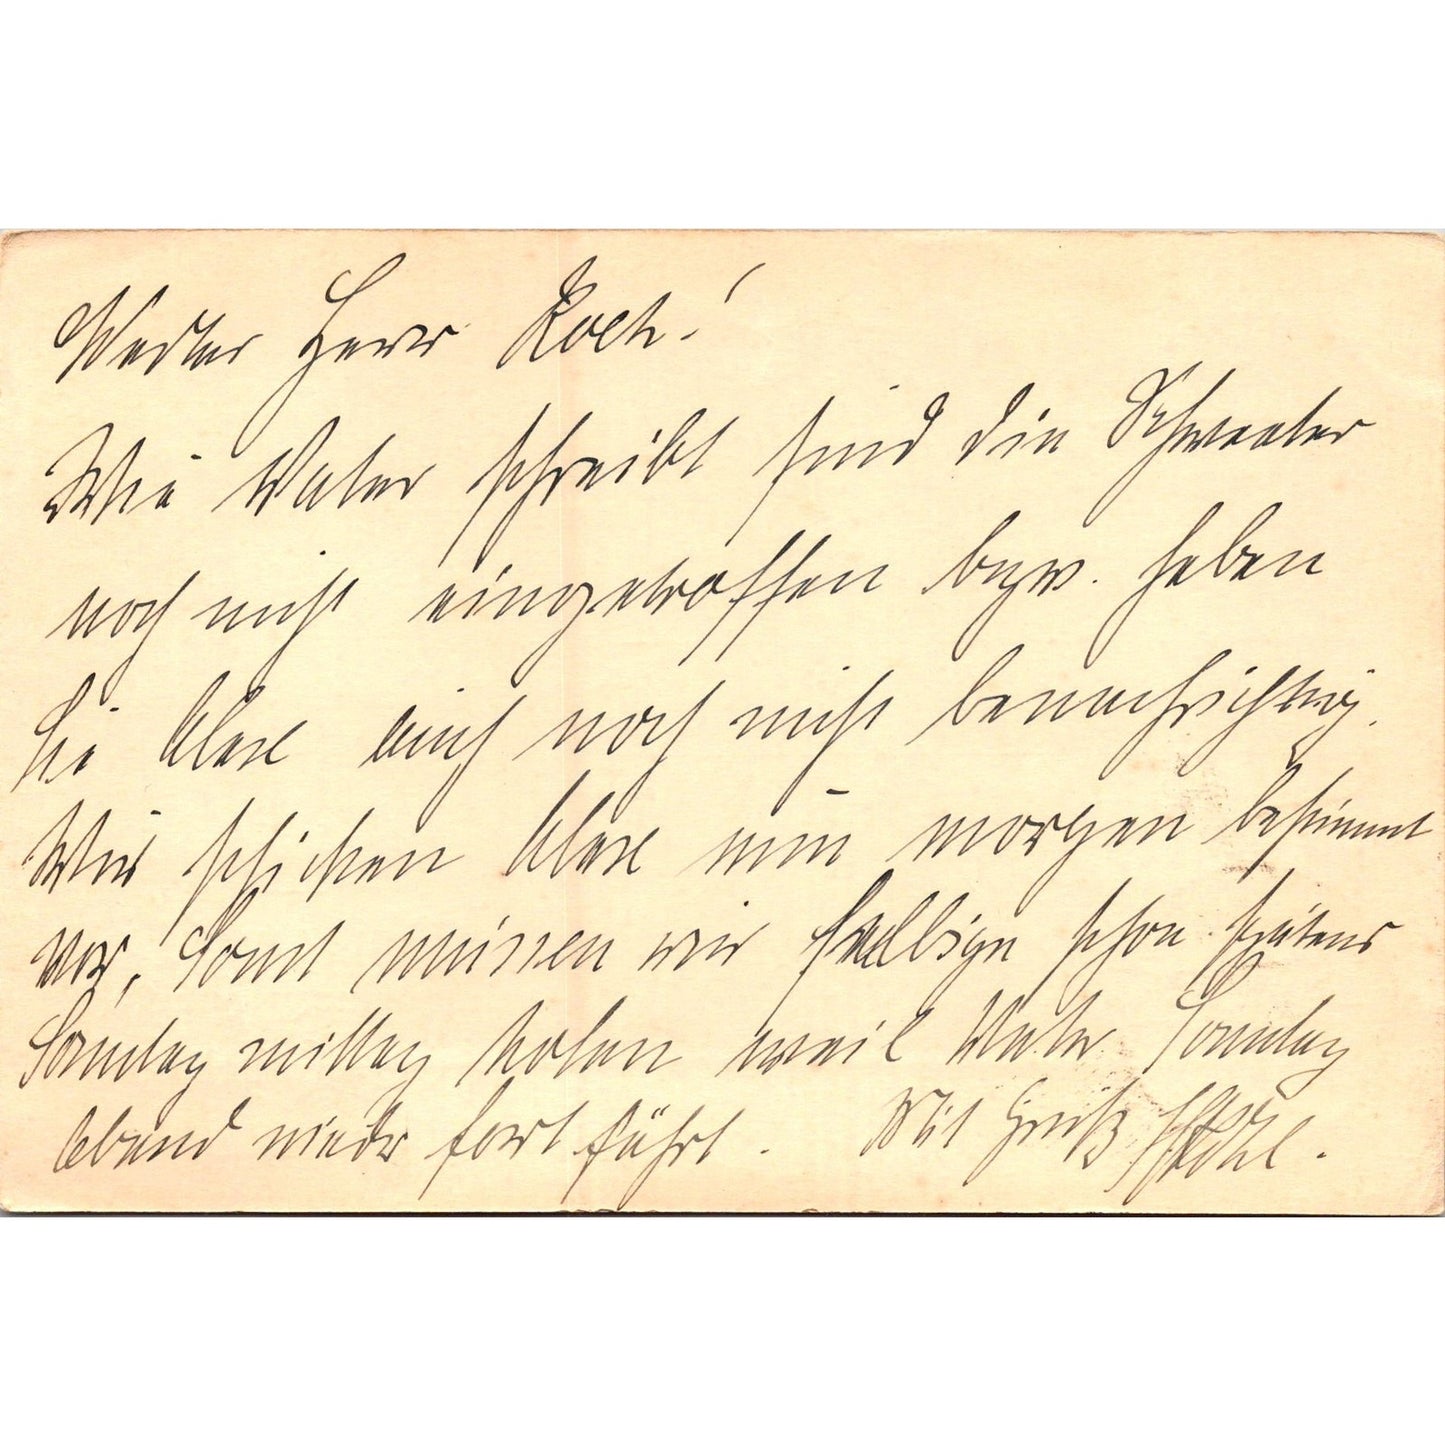 Werter Herr Koch!
Wie Vater schreibt sind die
noch nicht eingetroffen bzw. haben
Sie auch noch nicht benachrichtig.
Wir schicken nun morgen bestimmt
vor, Sonst müssen wir selbige schon spätens
Sonntag mittag holen weil Vater Sonntag
Abend wieder fort fährt. Mit Gruß